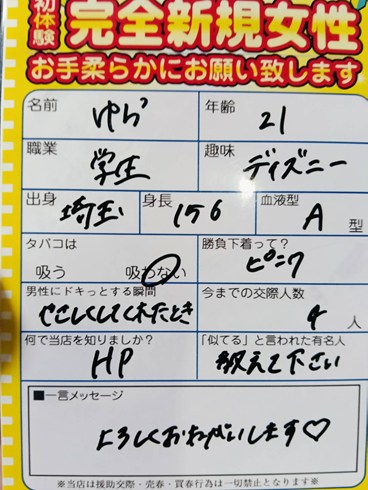 初体験
完全新規女性
お手柔らかにお願い致します
名前 ゆら 年齢 21
職業 学生 趣味 ディズニー
出身 埼玉 身長 156 血液型 A 型
タバコは 吸う 吸わない
勝負下着って? ピンク
男性にドキっとする瞬間 やさしくしてくれたとき
今までの交際人数 4 人
何で当店を知りましたか? HP
「似てる」と言われた有名人 教えて下さい
■一言メッセージ
よろしくおねがいします♡
※当店は援助交際・売春・買春行為は一切禁止となります※